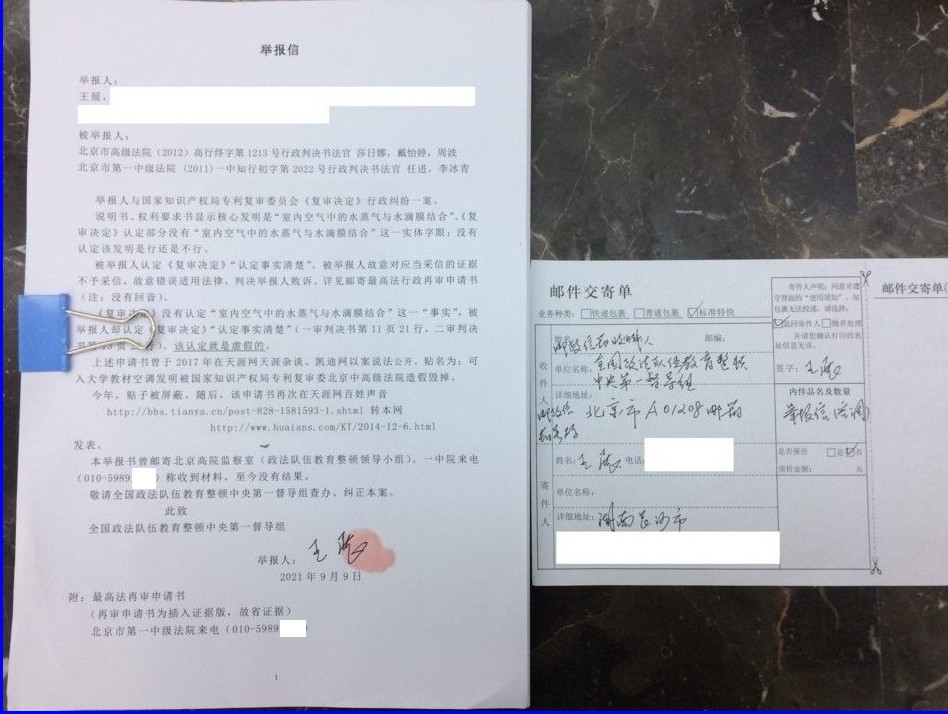 举报信
举报人：
王展，
被举报人：
北京市高级法院（2012）高行终字第1213号行政判决书法官 莎日娜，戴怡婷，周波
北京市第一中级法院（2011)一中知行初字第2022号行政判决书法官 任进，李冰青
举报人与国家知识产权局专利复审委员会《复审决定》行政纠纷一案。
说明书、权利要求书显示核心发明是“室内空气中的水蒸气与水滴膜结合”。《复
审决定》认定部分没有“室内空气中的水蒸气与水滴膜结合”这一实体字眼；没有
认定该发明是行还是不行。
被举报人认定《复审决定》“认定事实清楚”。被举报人故意对应当采信的证据
不予采信，故意错误适用法律，判决举报人败诉、详见邮寄最高法行政再审申请书
（注：没有回音）。
《复审决定》没有认定“室内空气中的水蒸气与水滴膜结合”这一“事实”，被
举报人却认定《复审决定》“认定事实清楚”（一审判决书第11页21行，二审判决
书第13页 ）。该认定就是虚假的。
上述申请书曾于2017年在天涯网天涯杂谈、凯迪网以案说法公开。贴名为：可
入大学教材空调发明被国家知识产权局专利复审委北京中高级法院造假毁掉。
今年，贴子被屏蔽。随后，该申请书再次在天涯网百姓声音
http://bbs.tianya.cn/post-828-1581593-1.shtml 转本网
http://www.huaians.com/KT/2014-12-6.html
发表。
本举报书曾邮寄北京高院监察室（政法队伍教育整顿领导小组）。一中院来电
（010-5989 ）称收到材料，至今没有结果。
敬请全国政法队伍教育整顿中央第一督导组查办、纠正本案。
此致
全国政法队伍教育整顿中央第一督导组
举报人： 王展
2021年9月9日
附：最高法再审申请书
（再审申请书为插入证据版，故省证据）
北京市第一中级法院来电（010-5989 ）
1
邮件交寄单
业务种类：□快递包裹 □普通包裹 ☑标准特快
收件人
邮编：
单位名称：全国政法队伍教育整顿
中央第一督导组
详细地址：
北京市A01208邮箱
寄件人
姓名：王展 电话：
单位名称：
详细地址：湖南长沙市
寄件人声明：同意并遵
守背面的“使用须知”，如
包裹无法投递，请选择：
☑退回寄件人□抛弃处理
并请您确认打印的名
址信息无误。
签字：王展
内件品名及数量
举报信
是否保价 □是☑否
保价金额： 元
邮件交寄单(
寄件人声明：